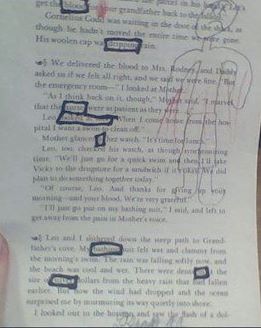 get the blood grandfather back to the
Cornelius Godd was waiting in the door of the shack, as
though he hadn't moved the entire time we were gone.
His woolen cap was dripping rain.
We delivered the blood to Mrs. Rodney, and Daddy
asked us if we felt all right, and we said we were fine. "But
the emergency room—" I looked at Mother.
"As I think back on it, though," Mother said, "I marvel
that they were as patient as they
Leo, "When I come home from the hos-
pital I want a swim to clean off."
Mother glanced at her watch. "It's time for lunch."
Leo, too, checked his watch, as though
time. "We'll just go for a quick swim and then I'll take
Vicks to the drugstore for a sandwich if it's okay. We did
plan to do something together today."
"Of course, Leo. And thanks for giving up your
morning—and your blood. We're very grateful."
"I'll just go put on my bathing suit," I said, and left to
get away from the pain in Mother's voice.
Leo and I slithered down the steep path to Grand-
father's cove. My bathing suit felt wet and clammy from
the morning's swim. The rain was falling softly now, and
the beach was cool and wet. There were dents
size of dollars from the heavy rain that had fallen
earlier. But now the wind had dropped and the ocean
surprised me by murmuring its way quietly into shore.
I looked out to the horizon, and saw the flash of a dol-